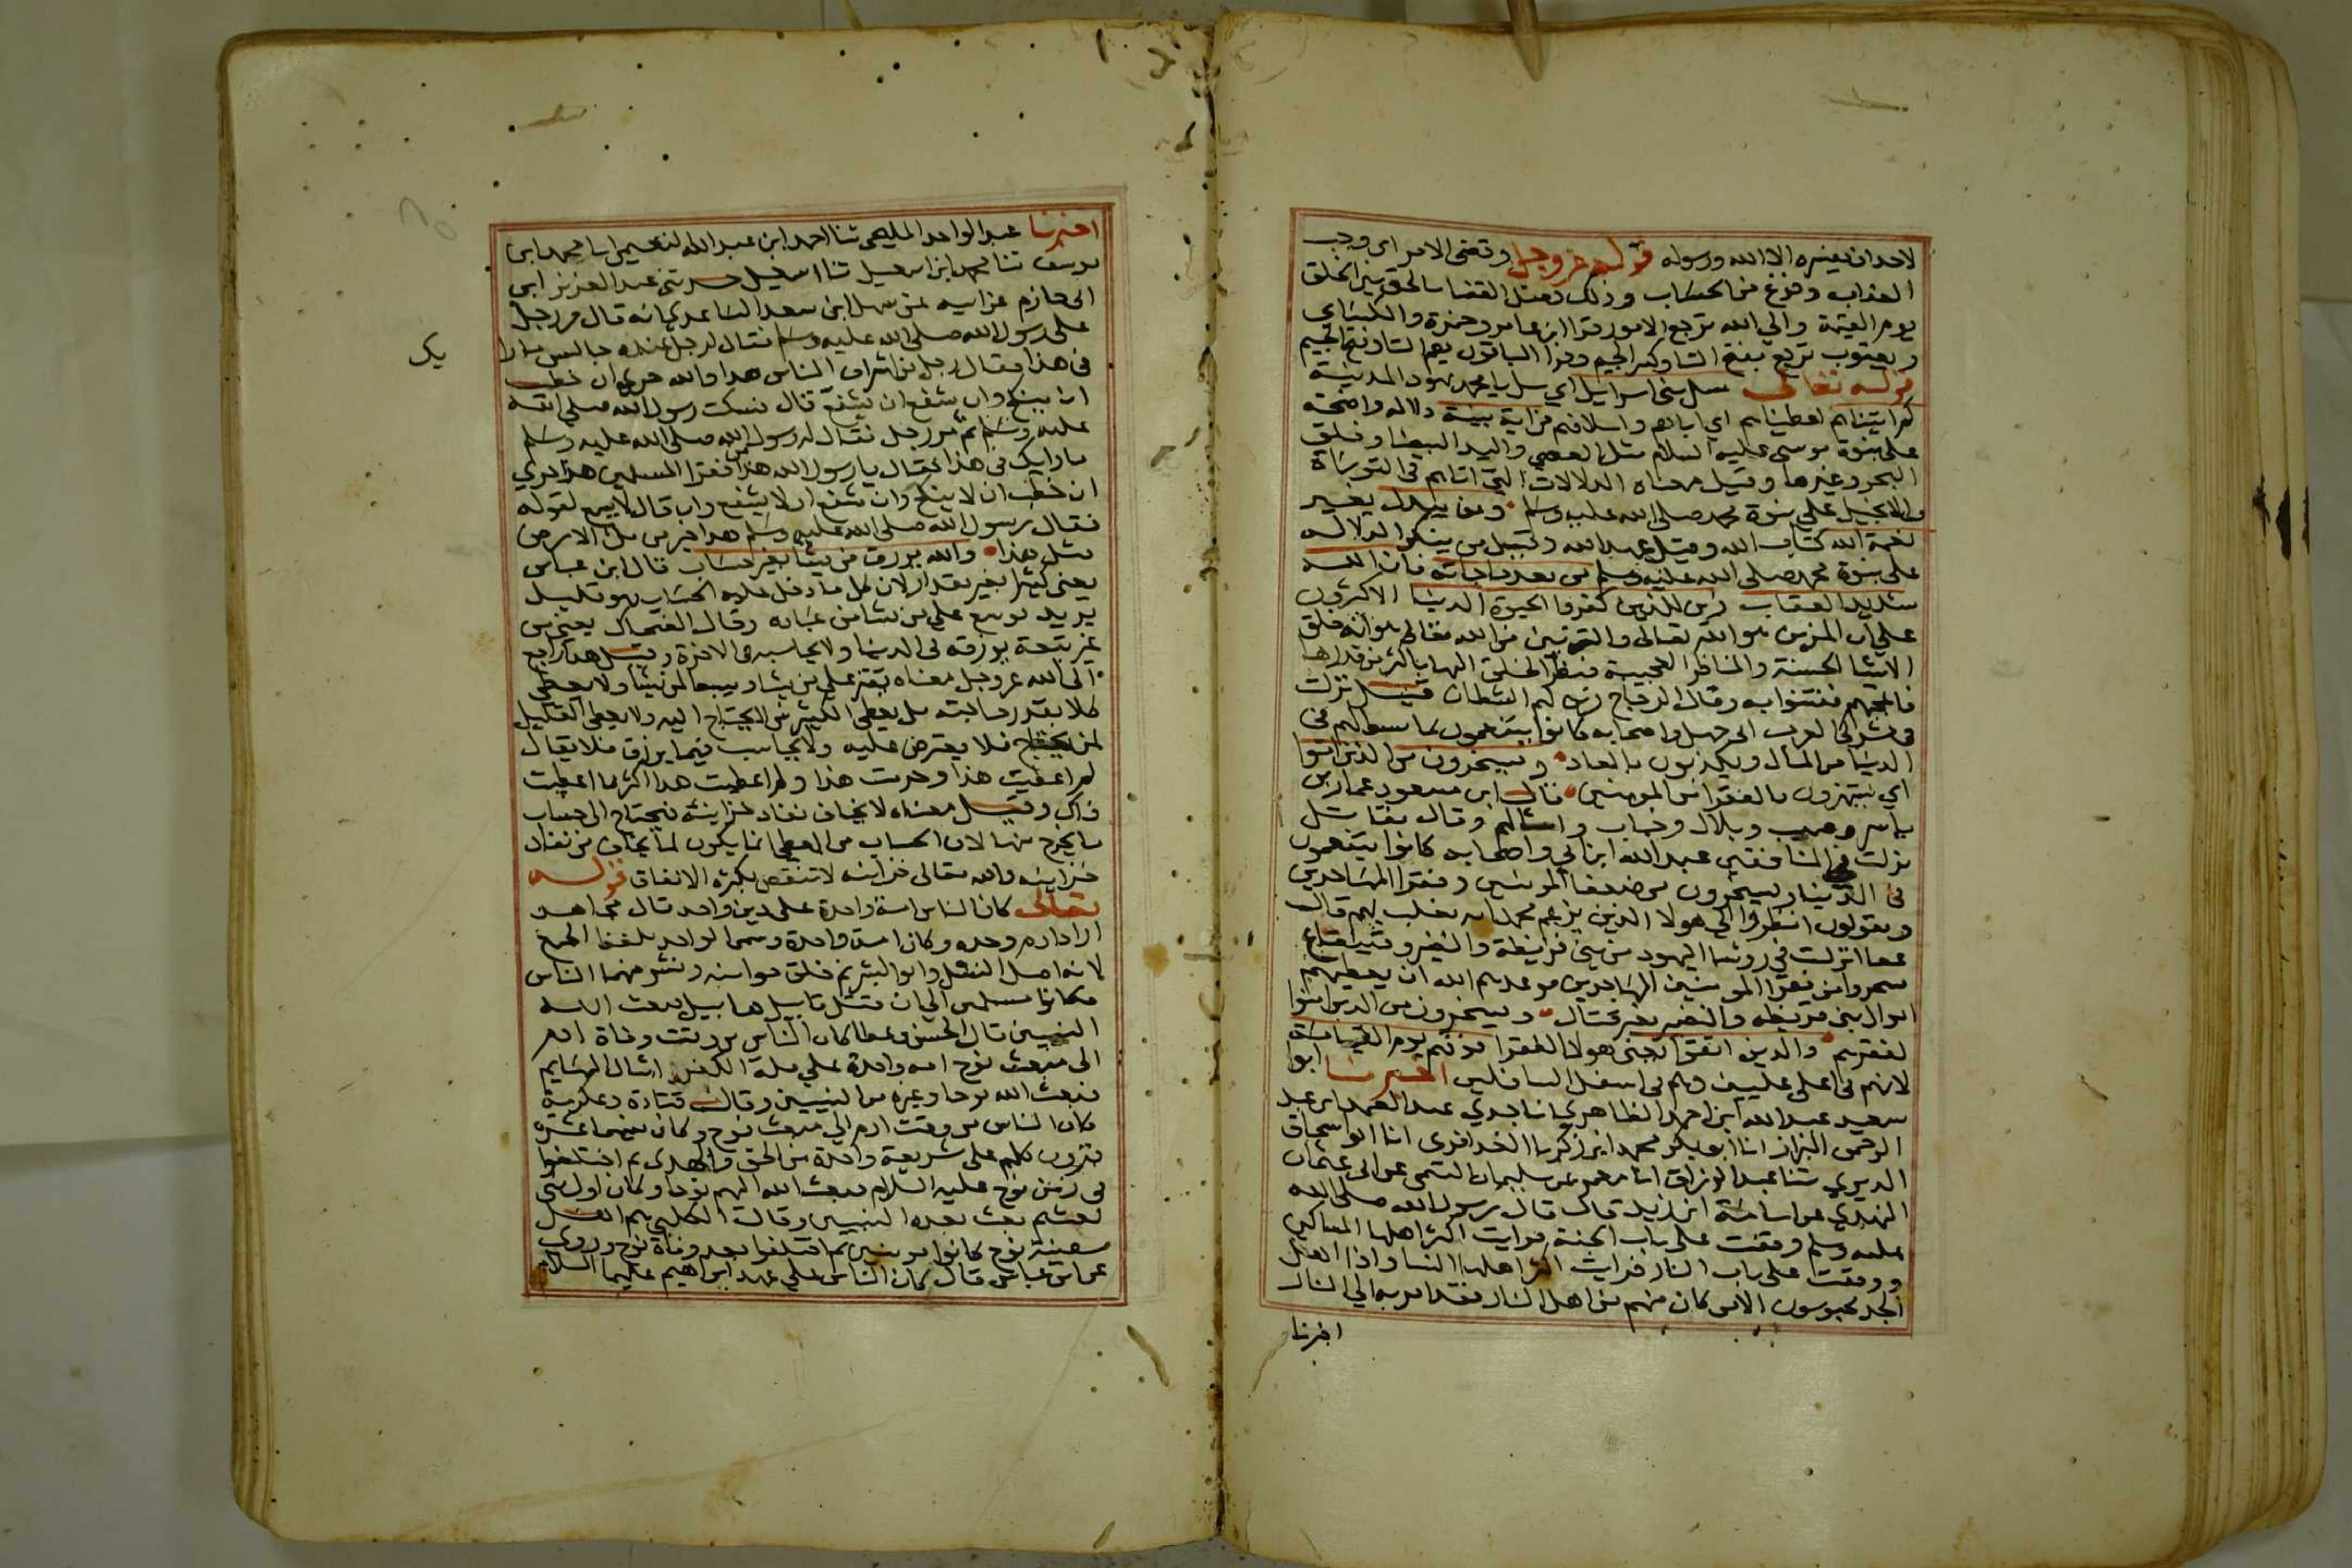 لاحد ان يفسره الا الله ورسوله قوله عز وجل وقضى الامر اى وجب
العذاب وفرغ من الحساب وذلك فصل القضا بالحق بين الخلق
يوم القيمة والى الله ترجع الامور قرا ابن عامر وحمزة والكساي
ويعقوب ترجع بفتح التا وكسر الجيم وقرا الباقون بضم التا وفتح الجيم
قوله تعالى سل بنى اسرائيل اي سل يا محمد يهود المدينة
كم اتيناهم اعطيناهم اي اباءهم واسلافهم من اية بينة دلالة واضحة
على نبوة موسى عليه السلام مثل العصى واليد البيضا وفلق
البحر وغيرها وقيل معناه الدلالات التي اتاهم فى التوراة
والانجيل علي نبوة محمد صلى الله عليه وسلم ومن يبدل يغير
نعمة الله كتاب الله وقيل عهد الله وقيل من ينكر الدلالة
على نبوة محمد صلى الله عليه وسلم من بعد ما جاته فان الله
شديد العقاب زين للذين كفروا الحيوة الدنيا الاكثرون
على ان المزين هو الله تعالى والتزيين من الله تعالى هو انه خلق
الاشيا الحسنة والمناظر العجيبة فنظر الخلق اليها باكثر من قدرها
فاعجبهم ففتنوا به وقال الزجاج زين لهم الشيطان قيل نزلت
فى مشركى العرب ابى جهل واصحابه كانوا يتنعمون بما بسط لهم فى
الدنيا من المال ويكذبون بالمعاد ويسخرون من الذين امنوا
اي يستهزون بالفقرا من المومنين قال ابن مسعود عمار بن
ياسر وصهيب وبلال وخباب وامثالهم وقال مقاتل
نزلت في المنافقين عبد الله ابن ابي واصحابه كانوا يتنعمون
فى الدنيا ويسخرون من ضعفا المومنين وفقرا المهاجرين
ويقولون انظروا الى هولا الذين يزعم محمد انه يغلب بهم قال
عطا انزلت في روسا اليهود من بني قريظة والنضير وقينقاع
سخروا من فقرا المومنين المهاجرين فوعدهم الله ان يعطيهم
اموال بنى قريظه والنضير بغير قتال ويسخرون من الذين امنوا
لفقرهم والذين اتقوا يعنى هولا الفقرا فوقهم يوم القيامة
لانهم فى اعلى عليين وهم فى اسفل السافلين اخبرنا ابوا
سعيد عبد الله ابن احمد الطاهري انا جدي عبد الصمد ابن عبد
الرحمن البزاز انا ابو بكر محمد ابن زكريا العذافرى انا ابو اسحاق
الدبري ثنا عبد الرزاق انا معمر عن سليمان التيمى عن ابى عثمان
النهدي عن اسامة ابن زيد قال قال رسول الله صلى الله
عليه وسلم وقفت على باب الجنة فرايت اكثر اهلها المساكين
ووقفت على باب النار فرايت اكثر اهلها النسا واذا اهل
الجد محبوسون الا من كان منهم من اهل النار فقد امر به الى النار
اخبرنا
اخبرنا عبد الواحد المليحى ثنا احمد ابن عبد الله النعيمى انا محمد ابن
يوسف ثنا محمد ابن اسمعيل ثنا اسمعيل حدثنى عبد العزيز ابن
ابى حازم عن ابيه عن سهل ابن سعد الساعدي انه قال مر رجل
على رسول الله صلى الله عليه وسلم فقال لرجل عنده جالس ما را
يك
فى هذا فقال رجل من اشراف الناس هذا والله حرى ان خطب
ان ينكح وان شفع ان يشفع قال فسكت رسول الله صلى الله
عليه وسلم ثم مر رجل فقال له رسول الله صلى الله عليه وسلم
ما رايك فى هذا فقال يا رسول الله هذا من فقرا المسلمين هذا حري
ان خطب ان لا ينكح وان شفع ان لا يشفع وان قال لا يسمع لقوله
فقال رسول الله صلى الله عليه وسلم هذا خير من مل الارض
مثل هذا والله يرزق من يشا بغير حساب قال ابن عباس
يعنى كثيرا بغير مقدار لان كل ما دخل عليه الحساب فهو قليل
يريد يوسع على من يشا من عباده وقال الضحاك يعنى من
غير تبعة يرزقه فى الدنيا ولا يحاسبه فى الاخرة وقيل هذا راجع
الى الله عز وجل معناه يقتر على من يشا ويبسط لمن يشا ولا يعطى
كلا بقدر حاجته بل يعطى الكثير من لا يحتاج اليه ولا يعطى القليل
لمن يحتاج فلا يعترض عليه ولا يحاسب فيما يرزق فلا يقال
لم اعطيت هذا وحرمت هذا ولم اعطيت هذا اكثر مما اعطيت
ذاك وقيل معناه لا يخاف نفاد خزاينه فيحتاج الى حساب
ما يخرج منها لان الحساب من المعطى انما يكون لما يخاف من نفاد
خزاينه والله تعالى خزاينه لا تنقص بكثرة الانفاق قوله
تعالى كان الناس امة واحدة على دين واحد قال مجاهد
اراد ادم وحده وكان امة واحدة وسمى الواحد بلفظ الجمع
لانه اصل النسل وابو البشر ثم خلق حوا منه ونشر منهما الناس
فكانوا مسلمين الى ان قتل قابيل هابيل فبعث الله
النبيين قال الحسن وعطا كان الناس من وقت وفاة ادم
الى مبعث نوح امه واحدة على ملة الكفر امثال البهايم
فبعث الله نوحا وغيره من النبيين وقال قتادة وعكرمة
كان الناس من وقت ادم الى مبعث نوح وكان بينهما عشرة
قرون كلهم على شريعة واحدة من الحق والهدى ثم اختلفوا
فى زمن نوح عليه السلام فبعث الله اليهم نوحا وكان اول نبى
بعث ثم بعث بعده النبيين وقال الكلبي هم اهل
سفينة نوح كانوا مومنين ثم اختلفوا بعد وفاة نوح وروى
عن ابن عباس قال كان الناس على عهد ابراهيم عليه السلام